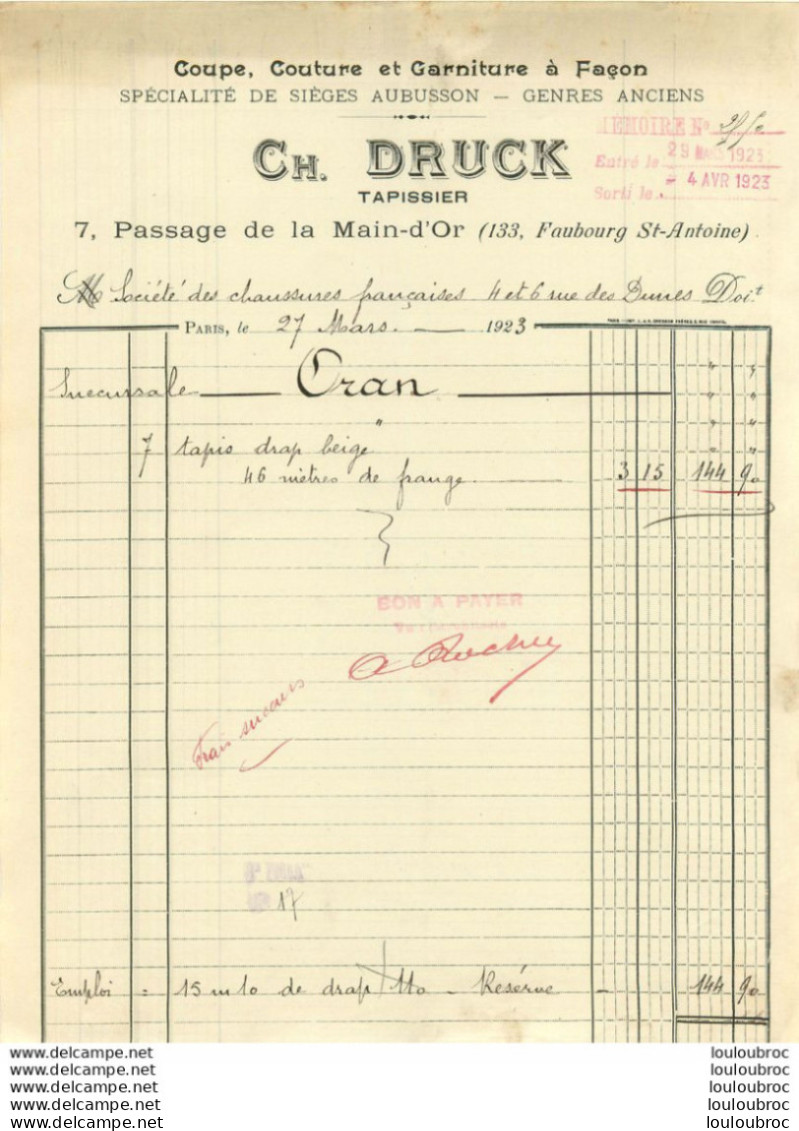 Coupe, Couture et Garniture à Façon
SPÉCIALITÉ DE SIÈGES AUBUSSON — GENRES ANCIENS
CH. DRUCK
TAPISSIER
MÉMOIRE No
Entré le 29 MARS 1923
Sorti le - 4 AVR 1923
7, Passage de la Main-d'Or (133, Faubourg St-Antoine)
M Société des chaussures françaises 4 et 6 rue des Dunes Doit
PARIS, le 27 Mars 1923
Succursale — Oran
7 tapis drap beige
46 mètres de frange 3 15 144 90
BON A PAYER
Frais succurs
17
Emploi = 15 m 10 de drap - Reserve - 144 90
www.delcampe.net louloubroc
www.delcampe.net louloubroc
www.delcampe.net louloubroc
www.delcampe.net louloubroc
www.delcampe.net louloubroc